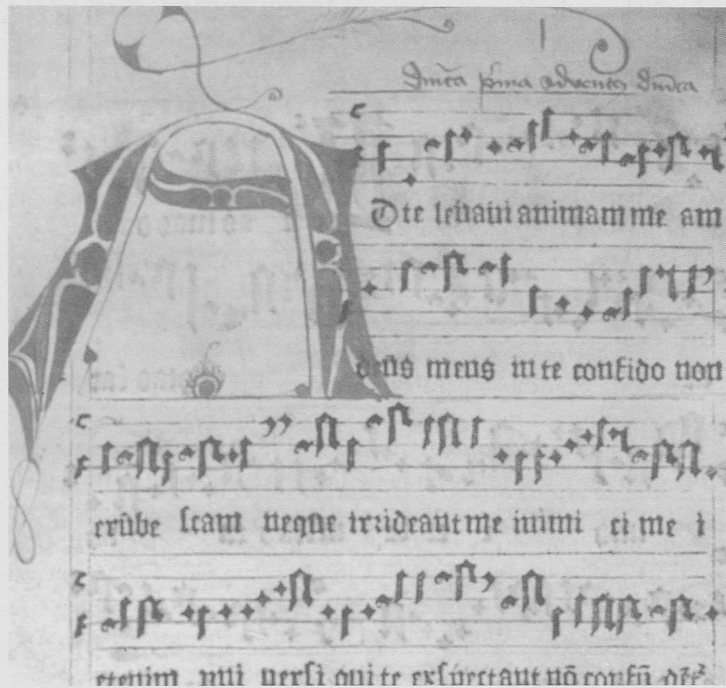 Dnica prima adventus dnica
A Dte levavi animam me am
deus meus in te confido non
erube scam neque irrideant me inimi ci me i
etenim uni versi qui te exspectant nō confū